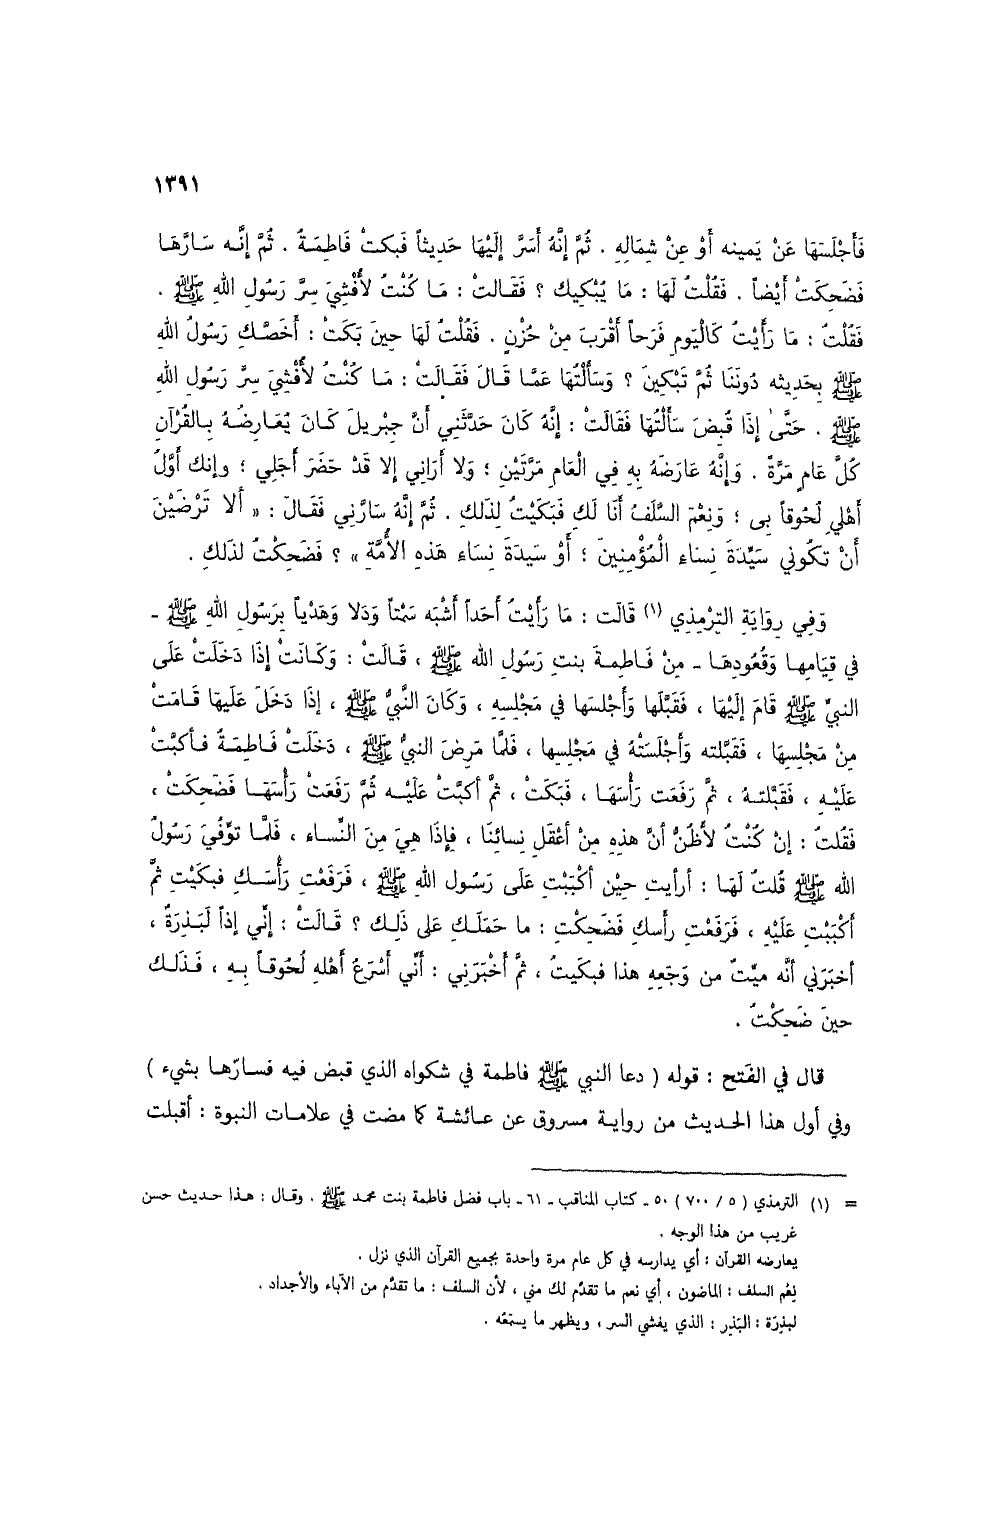 ١٣٩١
فَأَجْلَسَهَا عَنْ يَمينه أَوْ عِنْ شِمَالِهِ . ثُمَّ إِنَّهُ أَسَرَّ إِلَيْهَا حَديثاً فَبكتْ فَاطِمَةُ . ثُمَّ إِنَّـه سَـارَّهَـا
فَضَحِكَتْ أَيْضاً . فَقُلْتُ لَهَا : مَا يُبْكِيك ؟ فَقَـالتْ : مَـا كُنْتُ لأُفْشِيَ سِرَّ رَسُولِ اللهِ ﷺ .
فَقُلْتُ : مَا رَأَيْتُ كَالْيَوم فَرَحاً أَقْرَبَ مِنْ حُزْنٍ . فَقُلْتُ لَهَا حِينَ بَكَتْ : أَخَصَّكِ رَسُولُ اللهِ
ﷺ بِحَدِيثه دُونَنَا ثُمَّ تَبْكِينَ ؟ وَسَأَلْتُهَا عَمَّا قَـالَ فَقَـالَتْ : مَـا كُنْتُ لأُفْشِيَ سِرَّ رَسُولِ اللهِ
ﷺ . حَتَّى إِذَا قُبِضَ سَأَلْتُهَا فَقَالَتْ : إِنَّهُ كَانَ حَدَّثَنِي أَنَّ جِبْرِيلَ كَـانَ يُعَـارِضُـهُ بِـالقُرْآنِ
كُلَّ عَامٍ مَرَّةً . وَإِنَّهُ عَارَضَهُ بِهِ فِي الْعَامِ مَرَّتَيْنِ ؛ وَلا أَرَانِي إِلا قَدْ حَضَرَ أَجَلِي ؛ وإنك أَوَّلُ
أَهْلِي لُحُوقاً بِى ؛ وَنِعْمَ السَّلَفُ أَنَا لَكِ فَبَكَيْتُ لِذَلكِ . ثُمَّ إِنَّهُ سَارَّنِي فَقَـالَ : « أَلا تَرْضَيْنَ
أَنْ تَكُوني سَيِّدَةَ نِسَاء الْمُؤْمِنِينَ ؛ أَوْ سَيدَةَ نِسَاء هَذِهِ الأُمَّةِ » ؟ فَضَحِكْتُ لذَلكِ .
وَفِي رِوَايَةِ التِرْمِذي (١) قَالَت : مَا رَأَيْتُ أَحَداً أَشْبَه سَمْتاً وَدَلا وَهَدْياً بِرَسُولِ اللهِ ﷺ ـ
في قِيَامِهـا وَقُعُودِهَـا ـ مِنْ فَـاطِمـةَ بنتِ رَسُولِ الله ﷺ ، قَـالَتْ : وَكَـانَتْ إِذَا دَخَلَتْ عَلَى
النبيِّ ﷺ قَامَ إِلَيْهَا ، فَقَبَّلَها وَأَجْلسَها في مَجْلِسِهِ ، وَكَانَ النَّبِيُّ ﷺ ، إِذَا دَخَلَ عَلَيهَا قَـامَتْ
مِنْ مَجْلِسِهَا ، فَقَبَّلته وَأَجْلَسَتْهُ في مَجْلِسِها ، فَلمَّا مَرِضَ النبيُّ ﷺ ، دَخَلَتْ فَـاطِمَـةُ فـأكبَّتْ
عَلَيْـهِ ، فَقَبَّلتـهُ ، ثُمَّ رَفَعَت رَأْسَهَـا ، فَبَكَتْ ، ثُمَّ أَكبَّتْ عَلَيْـه ثُمَّ رَفَعَتْ رَأْسَهَـا فَضَحِكَتْ ،
فَقُلتُ : إِنْ كُنْتُ لأَظُنُّ أَنَّ هذِهِ مِنْ أَعْقَلِ نِسائِنَا ، فإِذَا هِيَ مِنَ النِّساء ، فَلَمَّـا تُوِّفيَ رَسُولُ
الله ﷺ قُلتُ لَهَـا : أرأيتِ حِيْن أكْبَبْتِ عَلَى رَسُول اللهِ ﷺ ، فَرَفَعْتِ رَأْسَـكِ فبكَيْتِ ثُمَّ
أَكْبَبْتِ عَلَيْهِ ، فَرَفَعْتِ رأْسك فَضَحِكْتِ : ما حَمَلَـكِ عَلَى ذلِـكَ ؟ قَـالَتْ : إِنِّي إِذاً لَبَـذِرَةٌ ،
أخبَرَني أنَّه ميِّتٌ من وَجَعِهِ هذا فبكَيتُ ، ثُمَّ أَخْبَرَنِي : أَنِّي أَسْرَعُ أَهْلِهِ لُحُوقـاً بِـهِ ، فَـذلَـكَ
حينَ ضَحِكْتُ .
قال في الفَتح : قوله ( دعا النبي ﷺ فاطمة في شكواه الذي قبض فيه فسـارّهـا بشيء )
وفي أول هذا الحـديث من روايـة مسروق عن عـائشـة كما مضت في علامـات النبوة : أقبلت
= (١) الترمذي ( ٥ / ٧٠٠ ) ٥٠ ـ كتاب المناقب ـ ٦١ ـ باب فضل فاطمة بنت محمد ﷺ . وقـال : هـذا حـديث حسن
غريب من هذا الوجه .
يعارضه القرآن : أي يدارسه في كل عام مرة واحدة بجميع القرآن الذي نزل .
نِعْم السلف : الماضون ، أي نعم ما تقدَّم لك مني ، لأن السلف : ما تقدَّم من الآباء والأجداد .
لبذِرَة : البَذِر : الذي يفشي السر ، ويظهر ما يسمعُه .